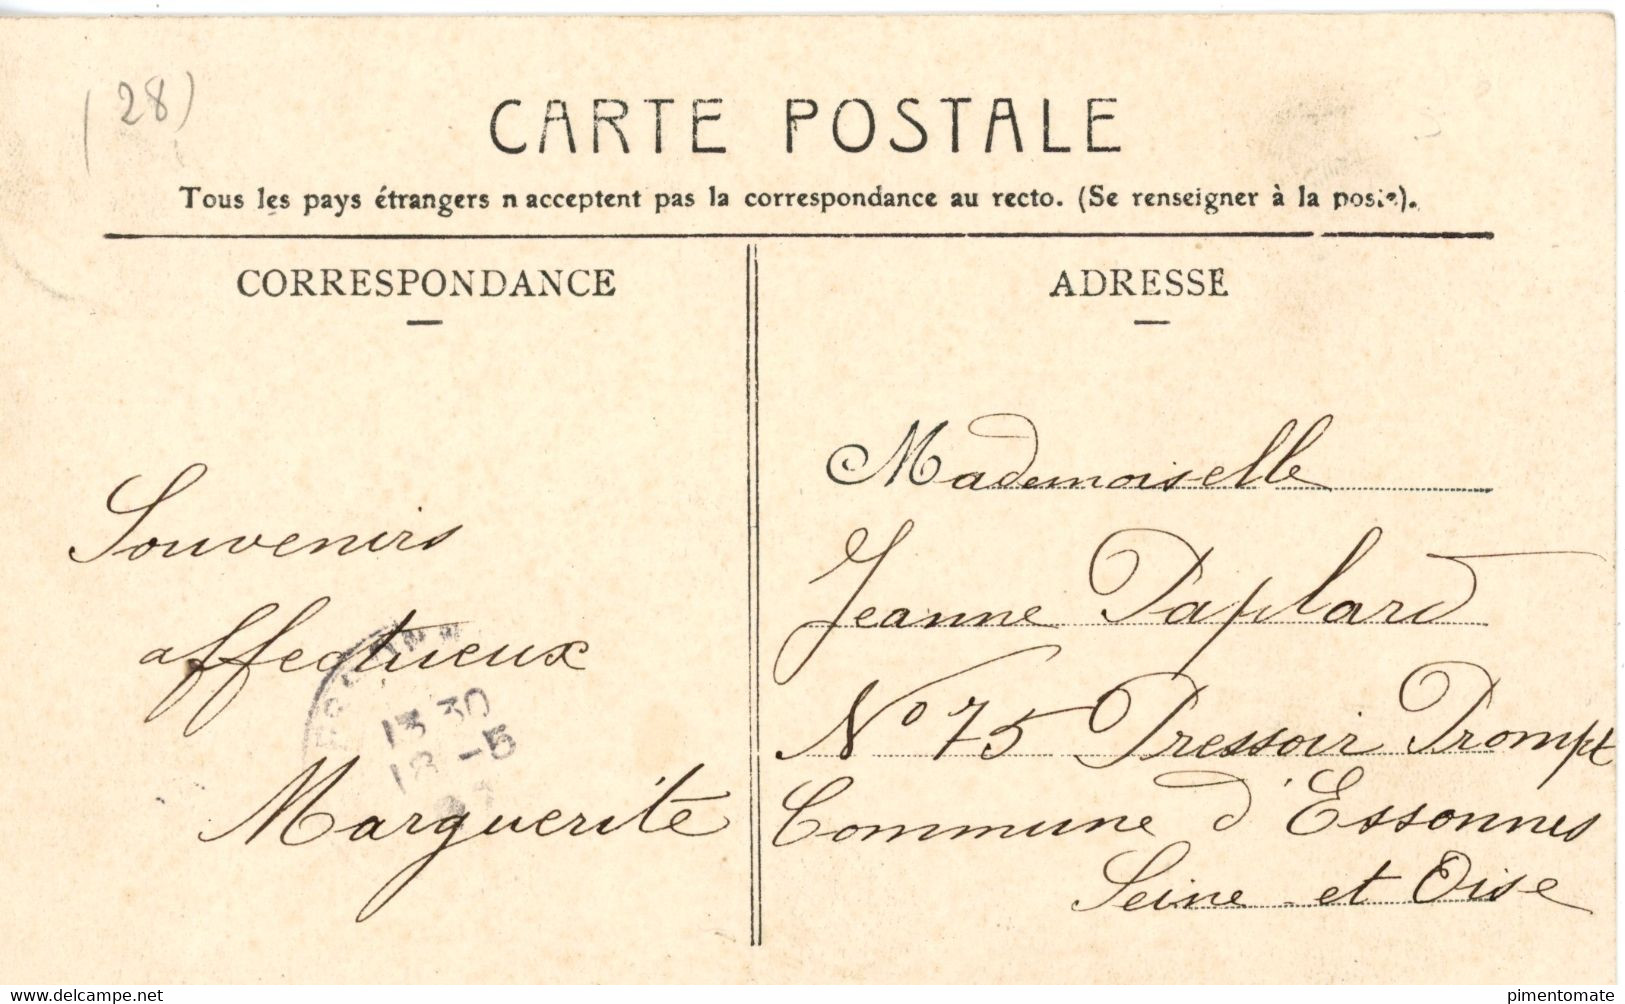 (28)
CARTE POSTALE
Tous les pays étrangers n acceptent pas la correspondance au recto. (Se renseigner à la poste).
CORRESPONDANCE
Souvenirs
affectueux
13 30
18 -5
Marguerite
ADRESSE
Mademoiselle
Jeanne Paplard
No 75 Pressoir Prompt
Commune d'Essonnes
Seine et Oise
www.delcampe.net
pimentomate